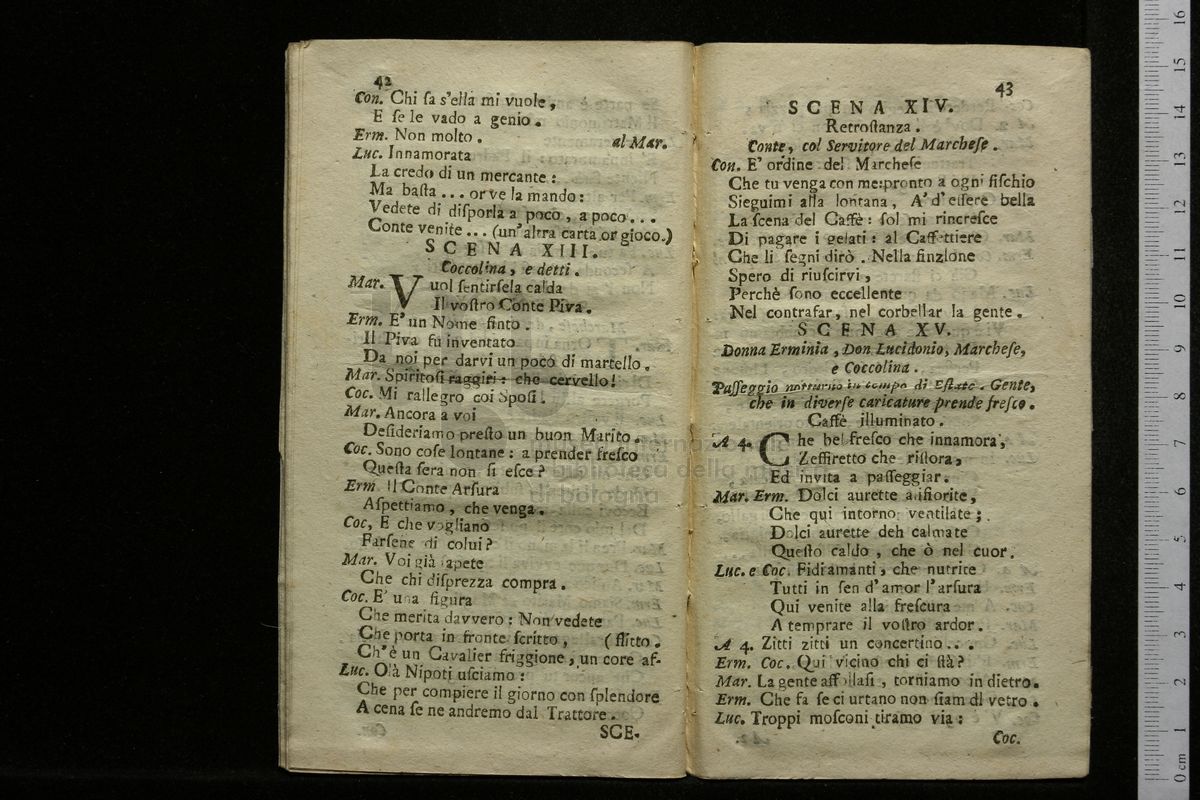 42
Con. Chi ſa s'ella mi vuole,
E ſe le vado a genio.
Erm. Non molto. al Mar.
Luc. Innamorata
La credo di un mercante:
Ma baſta ... or ve la mando:
Vedete di diſporla a poco, a poco ...
Conte venite ... (un'altra carta or gioco.)
SCENA XIII.
Coccolina, e detti.
Mar. Vuol ſentirſela calda
Il voſtro Conte Piva.
Erm. E' un Nome finto.
Il Piva fu inventato
Da noi per darvi un poco di martello.
Mar. Spiritoſi raggiri: che cervello!
Coc. Mi rallegro coi Spoſi.
Mar. Ancora a voi
Deſideriamo preſto un buon Marito.
Coc. Sono coſe lontane: a prender freſco
Queſta ſera non ſi eſce?
Erm. Il Conte Arſura
Aſpettiamo, che venga.
Coc, E che vogliano
Farſene di colui?
Mar. Voi già ſapete
Che chi diſprezza compra.
Coc. E' una figura
Che merita davvero: Non vedete
Che porta in fronte ſcritto, (flitto.
Ch'è un Cavalier friggione, un core af-
Luc. Olà Nipoti uſciamo:
Che per compiere il giorno con ſplendore
A cena ſe ne andremo dal Trattore.
SCE-
43
SCENA XIV.
Retroſtanza.
Conte, col Servitore del Marcheſe.
Con. E' ordine del Marcheſe
Che tu venga con me: pronto a ogni fiſchio
Sieguimi alla lontana, A' d'eſſere bella
La ſcena del Caffè: ſol mi rincreſce
Di pagare i gelati: al Caffettiere
Che li ſegni dirò. Nella finzione
Spero di riuſcirvi,
Perchè ſono eccellente
Nel contrafar, nel corbellar la gente.
SCENA XV.
Donna Erminia, Don Lucidonio, Marcheſe,
e Coccolina.
Paſſeggio notturno in tempo di Eſtate. Gente,
che in diverſe caricature prende freſco.
Caffè illuminato.
A 4. Che bel freſco che innamora,
Zeffiretto che riſtora,
Ed invita a paſſeggiar.
Mar. Erm. Dolci aurette infiorite,
Che qui intorno ventilate;
Dolci aurette deh calmate
Queſto caldo, che ò nel cuor.
Luc. e Coc. Fidi amanti, che nutrite
Tutti in ſen d'amor l'arſura
Qui venite alla freſcura
A temprare il voſtro ardor.
A 4. Zitti zitti un concertino...
Erm. Coc. Qui vicino chi ci ſtà?
Mar. La gente affollaſi, torniamo in dietro.
Erm. Che fa ſe ci urtano non ſiam di vetro.
Luc. Troppi moſconi tiramo via:
Coc.
museo internazionale
e biblioteca della musica
di bologna
0 cm 1 2 3 4 5 6 7 8 9 10 11 12 13 14 15 16